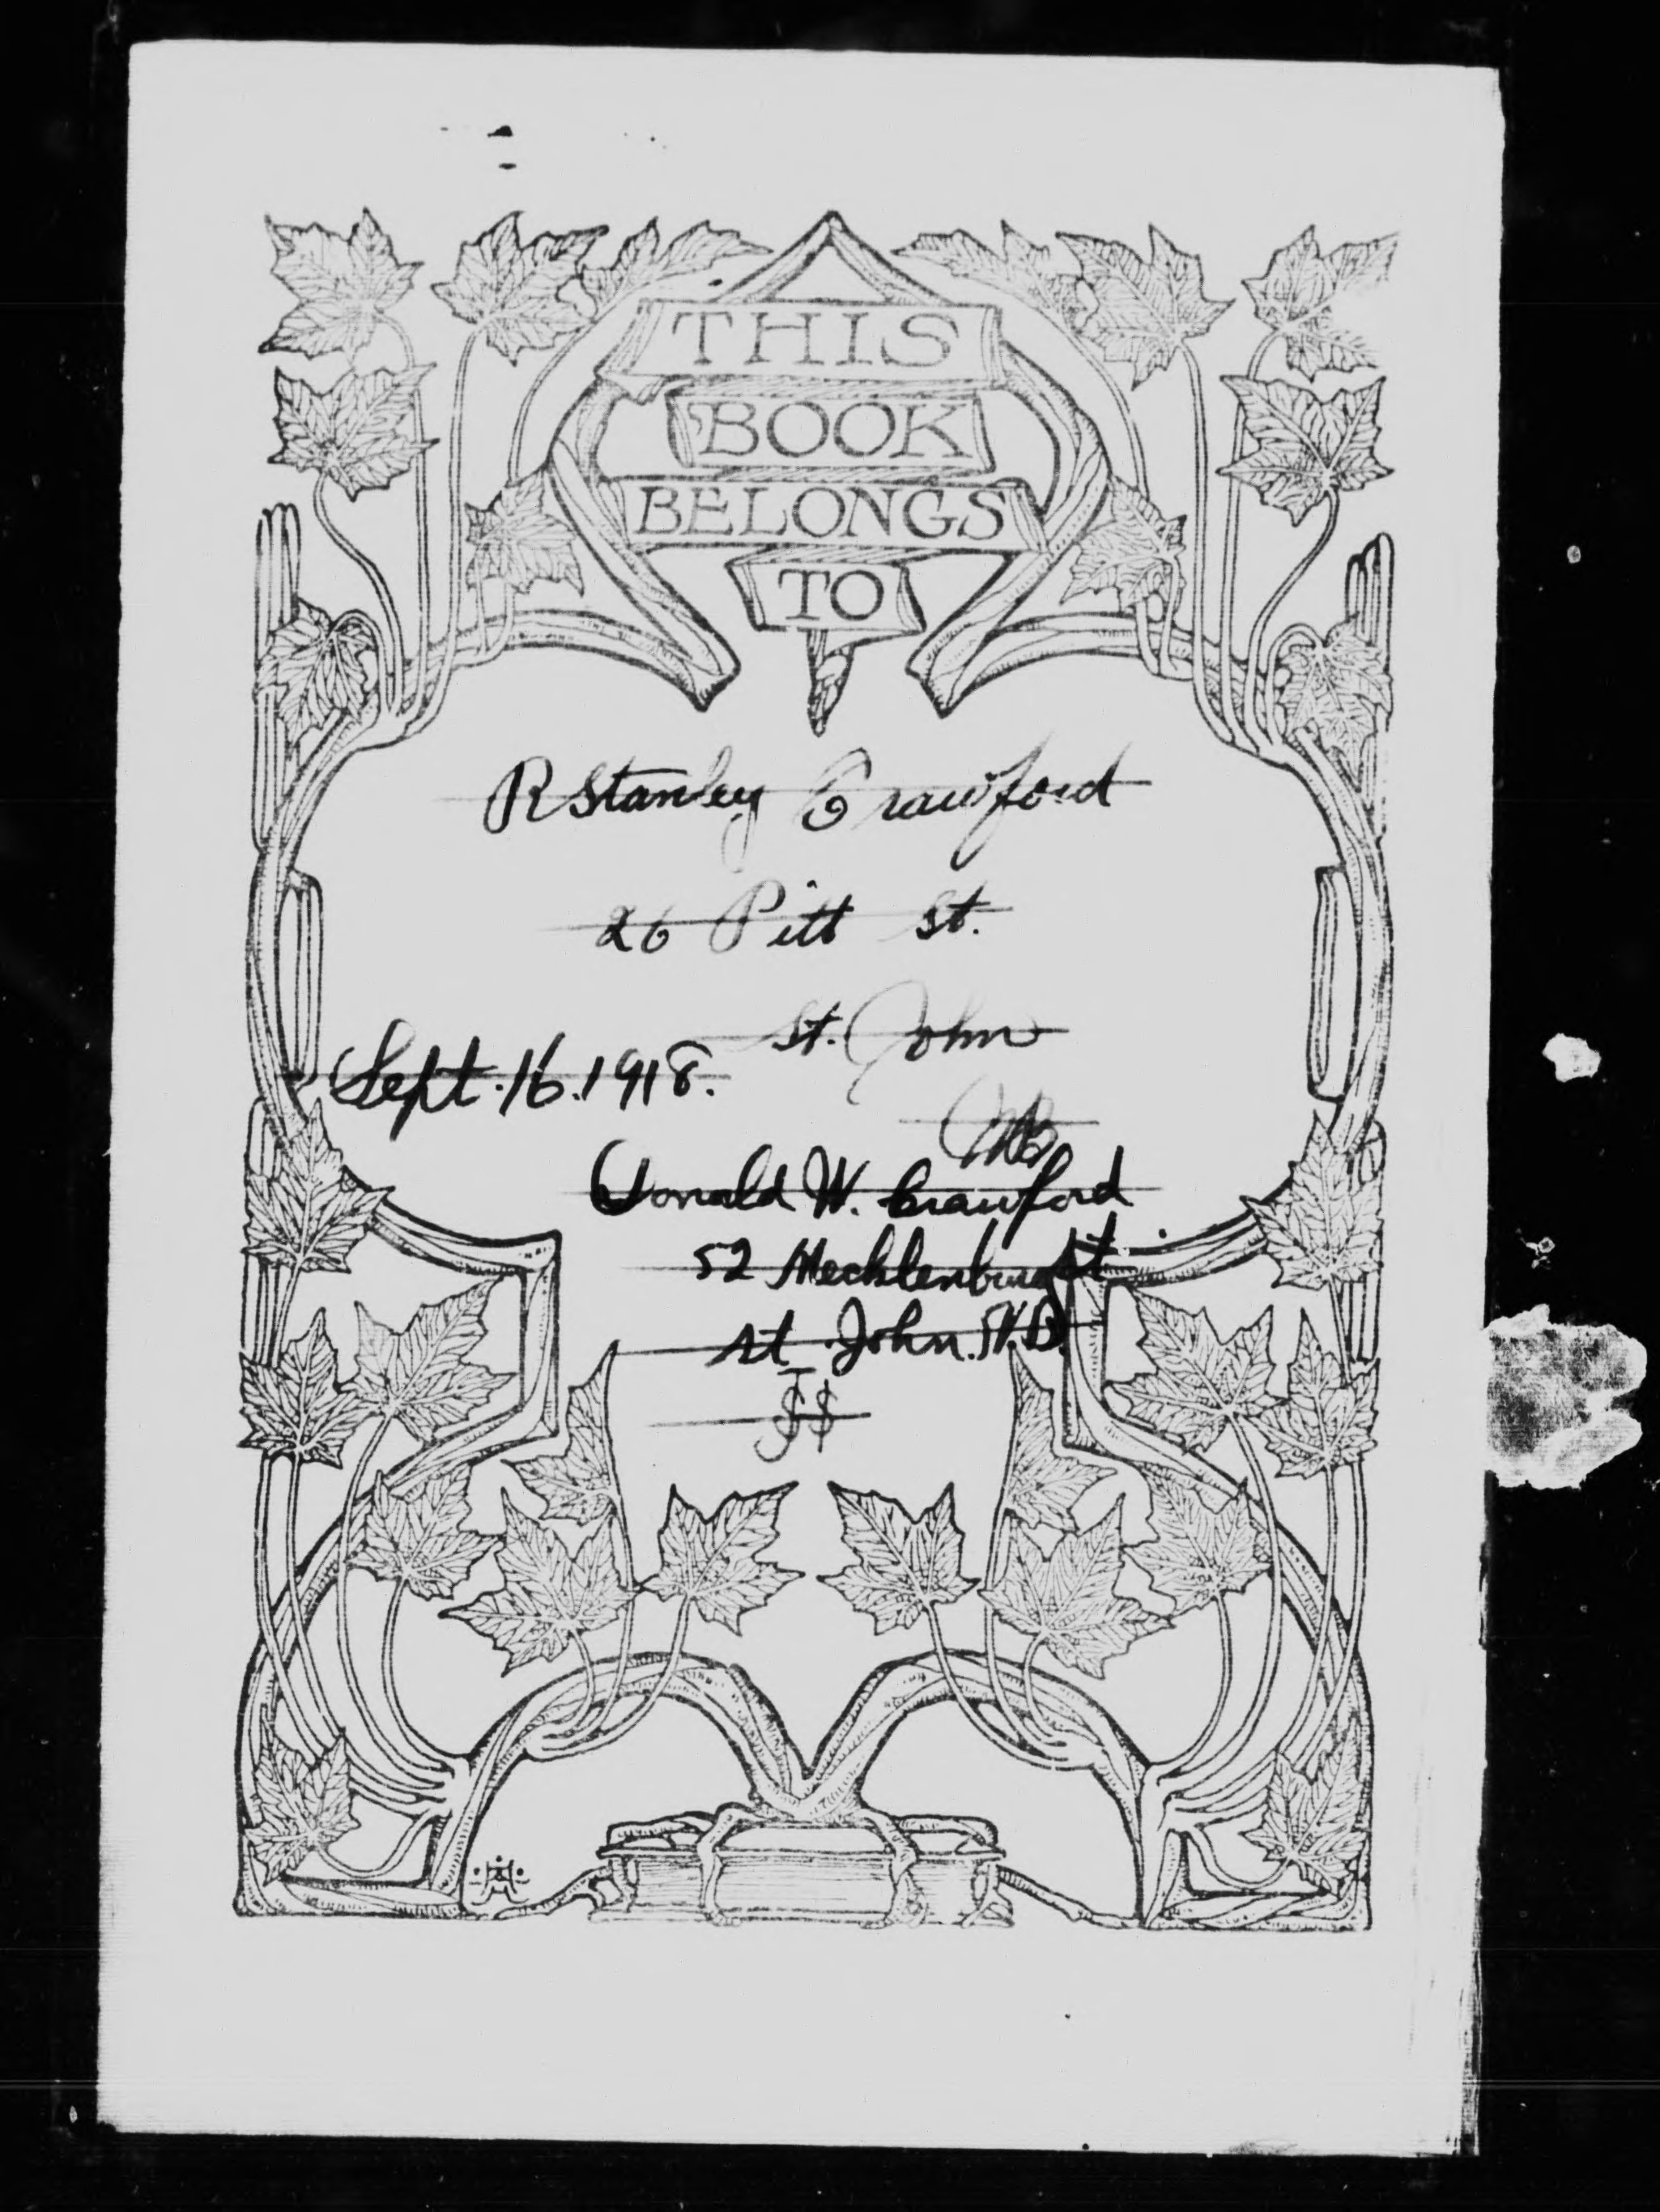 THIS
BOOK
BELONGS
TO
R Stanley Crawford
26 Pitt St.
St. John
Sept. 16. 1918.
NB
Donald W. Crawford
52 Mecklenburg St.
St John. N.B.